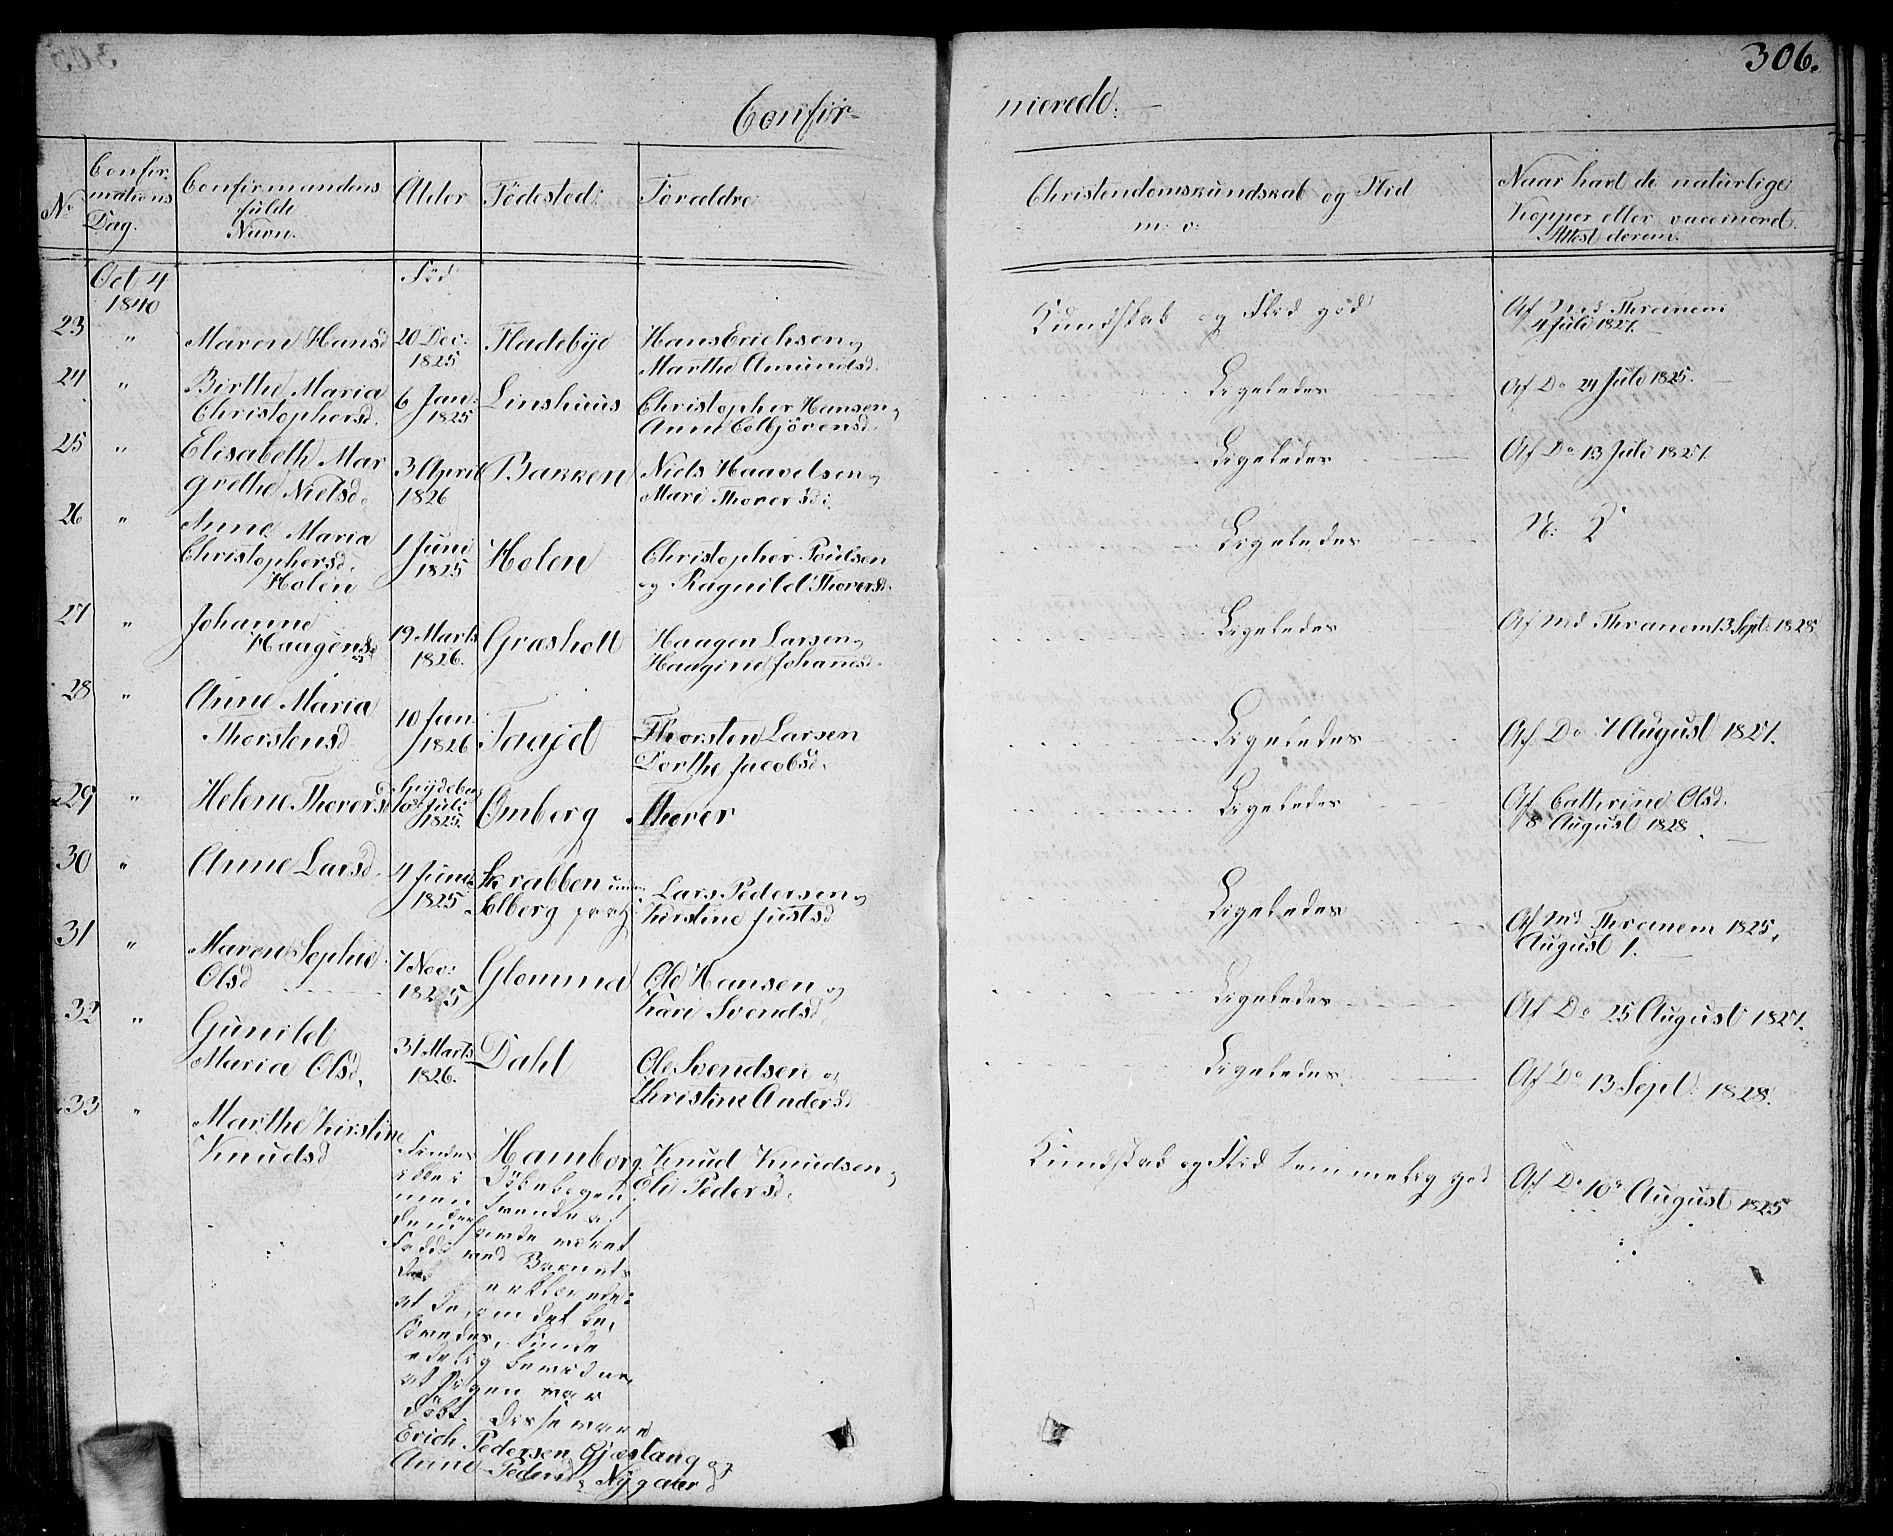 306.
Confir-
merede.
No
Confir-
mations
Dag.
Confirmandens
fulde
Navn.
Alder
Födested:
Foræddre
Christendomskundskab og Flid
m: v:
Naar havt de naturlige
Kopper eller vaccineret
Attest derom.
Oct 4
1840
Föd
23 " Maren Hansd 20 Dec: 1825 Fladebÿe Hans Erichsen og
Marthe Amundsd.
Kundskab og Flid god
Af Md Thranem
4 Juli 1827.
24 " Birthe Maria
Christophersd. 6 Jan: 1825 Linshuus Christopher Hansen og
Anne Colbjörensd.
Ligeledes
Af Do 24 Juli 1825.
25 " Elisabeth Mar
grethe Nielsd. 3 April 1826 Bakken Niels Haavelsen og
Mari Thorersd:
Ligeledes
Af Do 13 Juli 1827.
26 " Anne Maria
Christophersd.
Holen 1 Juni 1825 Holen Christopher Poulsen
og Ragnild Thorersd.
Ligeledes
27 " Johanne
Haagensd 19 Marts 1826. Græsholt Haagen Larsen og
Haagine Johannesd.
Ligeledes
Af Md Thranem 13 Sept: 1828
28 " Anne Maria
Thorstensd 10 Jan. 1826 Taajet Thorsten Larsen
Dorthe Jacobsd.
Ligeledes
Af Do 7 August 1827.
29 " Helene Thorersd 10 Juli 1825. Omberg Thorer
Ligeledes
Af Cathrine Olsd.
8 August 1828.
30 " Anne Larsd. 4 Juni 1825 Skrabben under
Solberg Lars Pedersen og
Kirstine Justsd
Ligeledes
Af Md Thranem 1825,
August 1.
31 " Maren Sophie
Olsd 7 Nov: 1825 Glomma Ole Hansen og
Kari Svendsd.
Ligeledes
Af Do 25 August 1827.
32 " Gunild
Maria Olsd. 31 Marts 1826. Dahl Ole Svendsen og
Christine Andersd
Ligeledes
Af Do 13 Sept. 1828.
33 " Marthe Kirstine
Knudsd Hamborg Knud Knudsen og
Eli Pedersd.
Kundskab og Flid temmelig god
Af Do 10 August 1825
Findes
ikke i
Döbebogen,
men
dem
været
Fadd med Barnets
Daab erklærede
at de, om det be-
gjæredes, kunde
edelig bevidne,
at Pigen var
döbt. Disse vare
Erich Pedersen Gjæstang og
Anne Pedersd. Nÿgaard